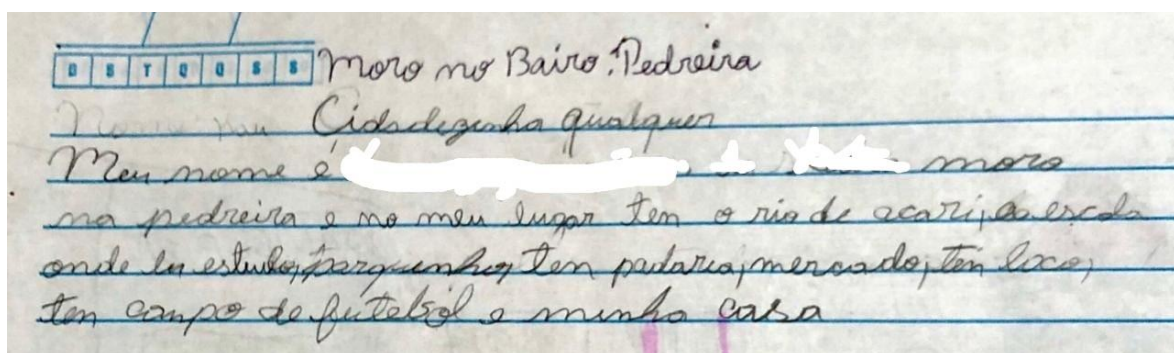 D S T Q Q S S Moro no Bairo: Pedreira
Cidadezinha qualquer
Meu nome é moro
na pedreira e no meu lugar tem o rio de acari, a escola
onde eu estudo, parquinho, tem padaria, mercado, tem
tem campo de futebol e minha casa